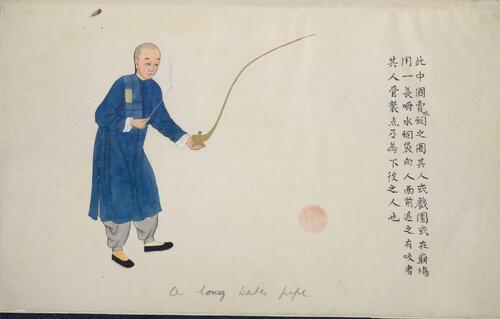 此中國賣水烟之圖其人或戲園或在廟塲
用一長水烟袋向人面前之有吸者
其人管裝点乃為下役之人也
a long water pipe